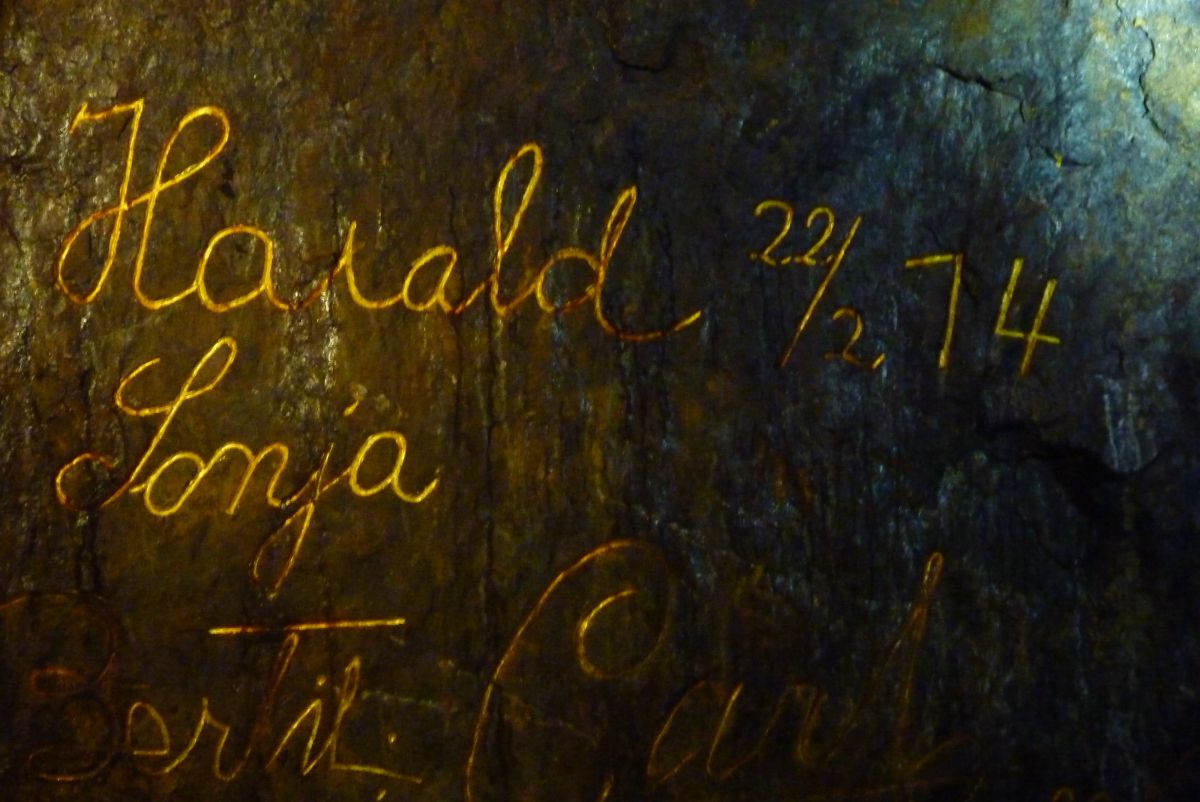 Harald 22/2 74
Sonja
Bertil. Carl